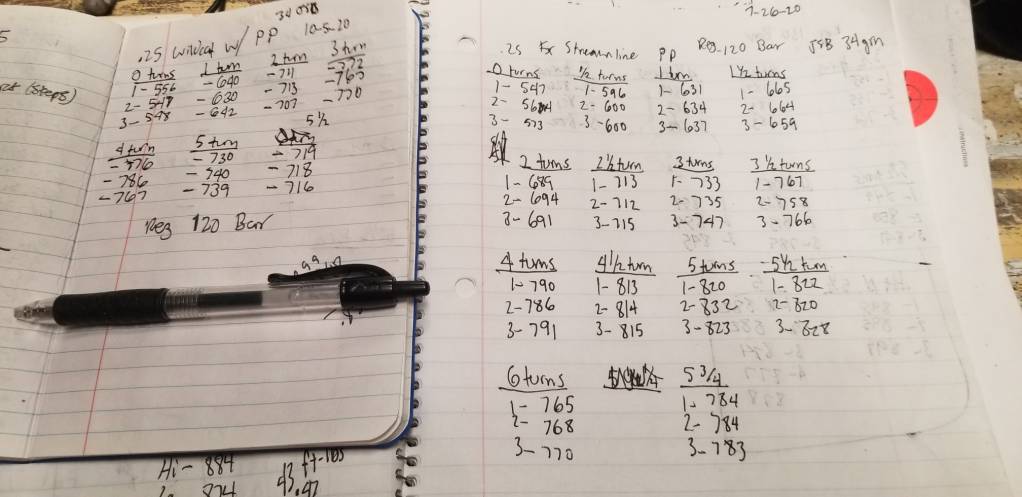 34 gm
.25 Wildcat w/ PP 10-5-20
0 turns 1 turn 2 turn 3 turn
1- 556 - 640 - 711 - 772
2- 547 - 630 - 713 - 765
3- 548 - 642 - 707 - 770
5 1/2
4 turn 5 turn
- 776 - 730 - 719
- 786 - 740 - 718
- 767 - 739 - 716
Reg 120 Bar
Hi- 884 ft-lbs
874 43.47
(steps)
7-26-20
.25 Fx Streamline PP Reg-120 Bar JSB 34gm
0 turns 1/2 turns 1 turn 1 1/2 turns
1- 547 1- 596 1- 631 1- 665
2- 564 2- 600 2- 634 2- 664
3- 573 3- 600 3- 637 3- 659
2 turns 2 1/2 turn 3 turns 3 1/2 turns
1- 689 1- 713 1- 733 1- 767
2- 694 2- 712 2- 735 2- 758
3- 691 3- 715 3- 747 3- 766
4 turns 4 1/2 turn 5 turns 5 1/2 turn
1- 790 1- 813 1- 820 1- 822
2- 786 2- 814 2- 832 2- 820
3- 791 3- 815 3- 823 3- 828
6 turns 5 3/4
1- 765 1- 784
2- 768 2- 784
3- 770 3- 783